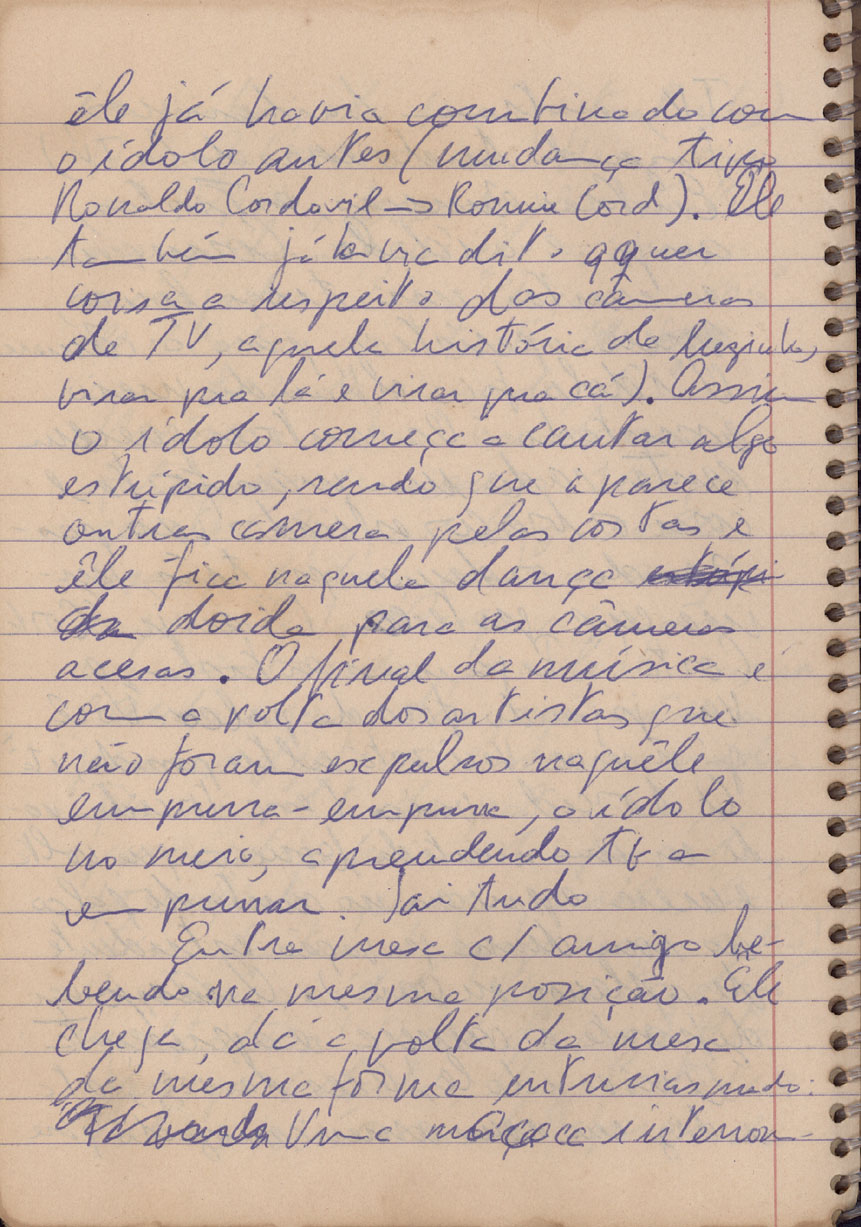 êle já havia combinado com
o ídolo antes (mudança tipo
Ronaldo Cordovil → Ronnie Cord). Êle
também já havia dito qquer
coisa a respeito das câmeras
de TV, aquela história de luzinha,
virar pra lá e virar pra cá). Assim
o ídolo começa a cantar algo
estúpido, sendo que aparece
outras câmera pelas costas e
êle fica naquela dança
doida para as câmeras
acesas. O final da música é
com a volta dos artistas que
não foram expulsos naquêle
empurra-empurra, o ídolo
no meio, aprendendo tb a
empurrar. Sai tudo
Entra mesa c/ amigo be-
bendo na mesma posição. Êle
chega, dá a volta da mesa
da mesma forma entusiasmado:
Uma